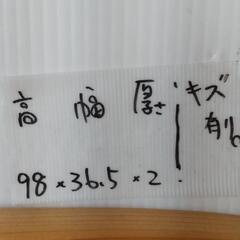 高 幅 厚さ キズ
有り
98×36.5×2